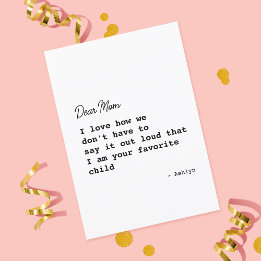 Dear Mom
I love how we
don't have to
say it out loud that
I am your favorite
child